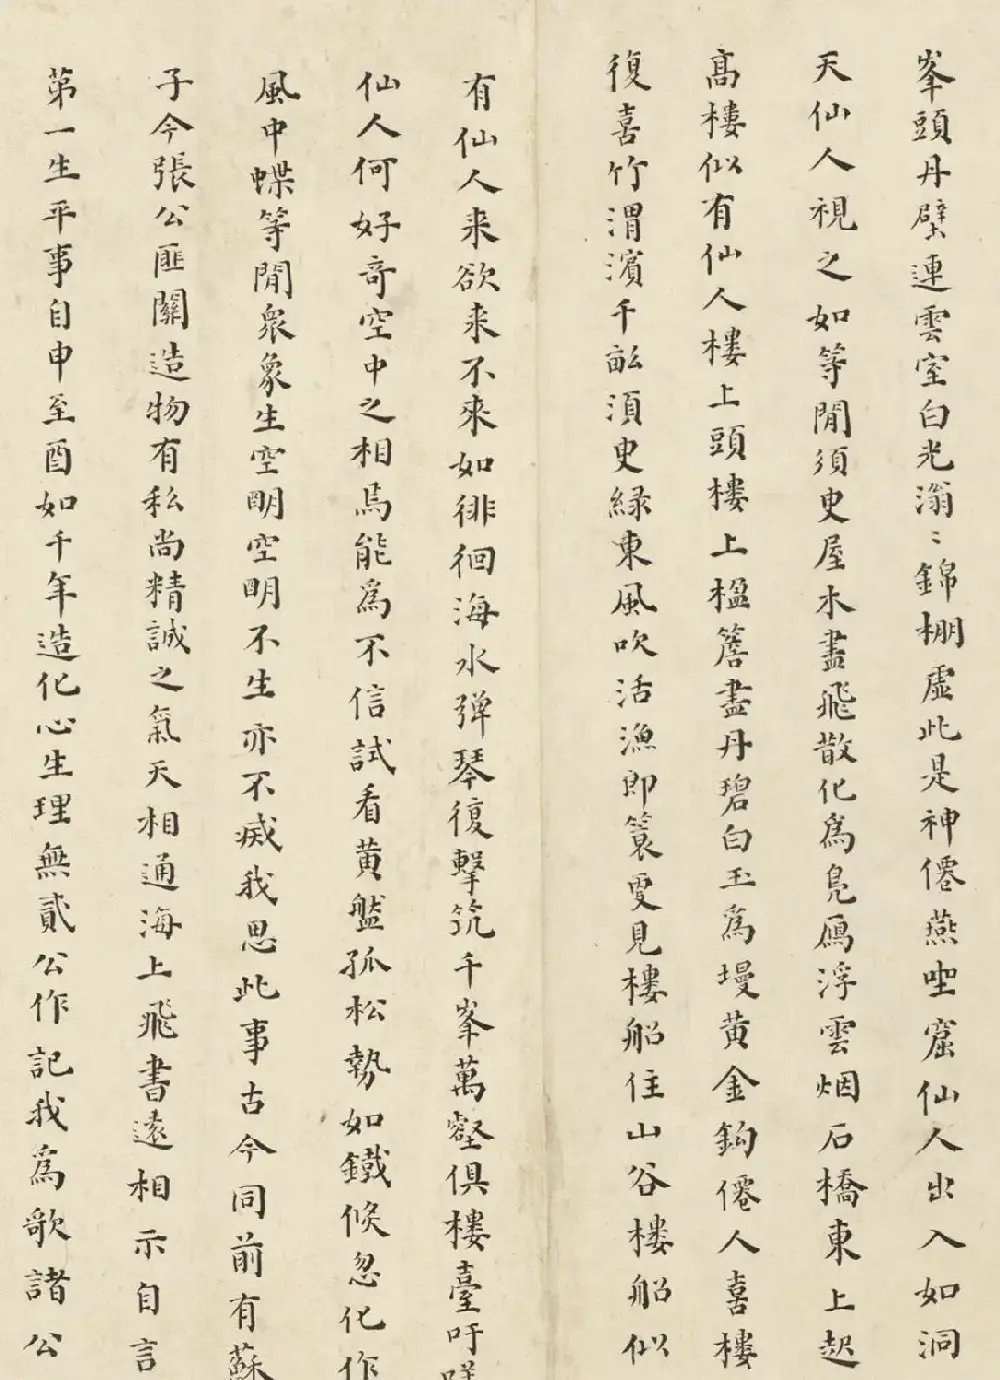 峯頭丹壁連雲室白光滃〻錦棚虛此是神僊燕坐窟仙人出入如洞
天仙人視之如等閒須臾屋木盡飛散化為鳧鴈浮雲烟石橋東上起
髙樓似有仙人樓上頭樓上楹簷盡丹碧白玉為墁黄金鈎僊人喜樓
復喜竹渭濱千畝湏臾緑東風吹活漁郎簑更見樓船住山谷樓船似
有仙人来欲来不來如徘徊海水弹琴復擊筑千峯萬壑俱樓臺吁嗟
仙人何好奇空中之相焉能為不信試看黄盤孤松勢如鐵倐忽化作
風中蝶等閒衆象生空明空明不生亦不滅我思此事古今同前有蘇
子今張公匪關造物有私尚精誠之氣天相通海上飛書遠相示自言
第一生平事自申至酉如千年造化心生理無貳公作記我為歌諸公